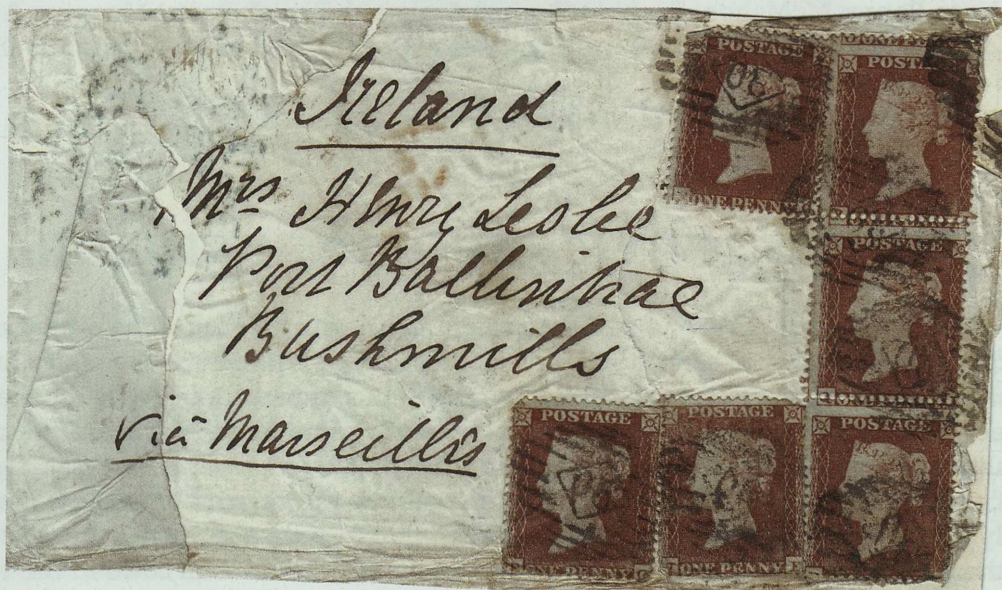 Ireland
Mrs Henry Leslie
Port Ballintrae
Bushmills
via Marseilles
POSTAGE
ONE PENNY
POSTAGE
POSTAGE
POSTAGE
ONE PENNY
POSTAGE
ONE PENNY
POSTAGE